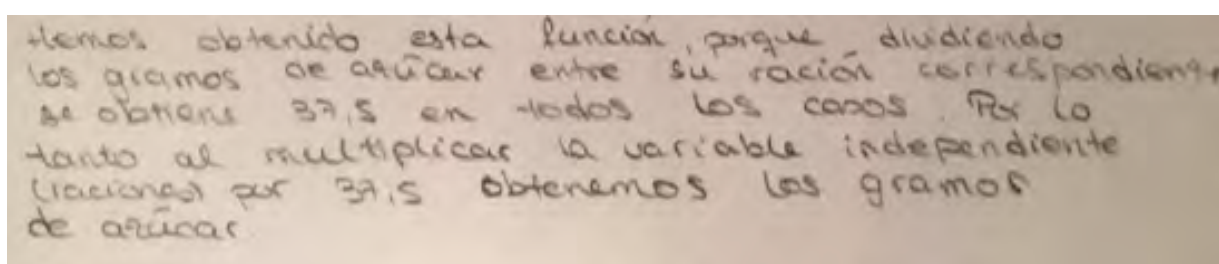 Hemos obtenido esta función, porque dividiendo
los gramos de azúcar entre su ración correspondiente
se obtiene 37,5 en todos los casos. Por lo
tanto al multiplicar la variable independiente
(raciones) por 37,5 obtenemos los gramos
de azúcar